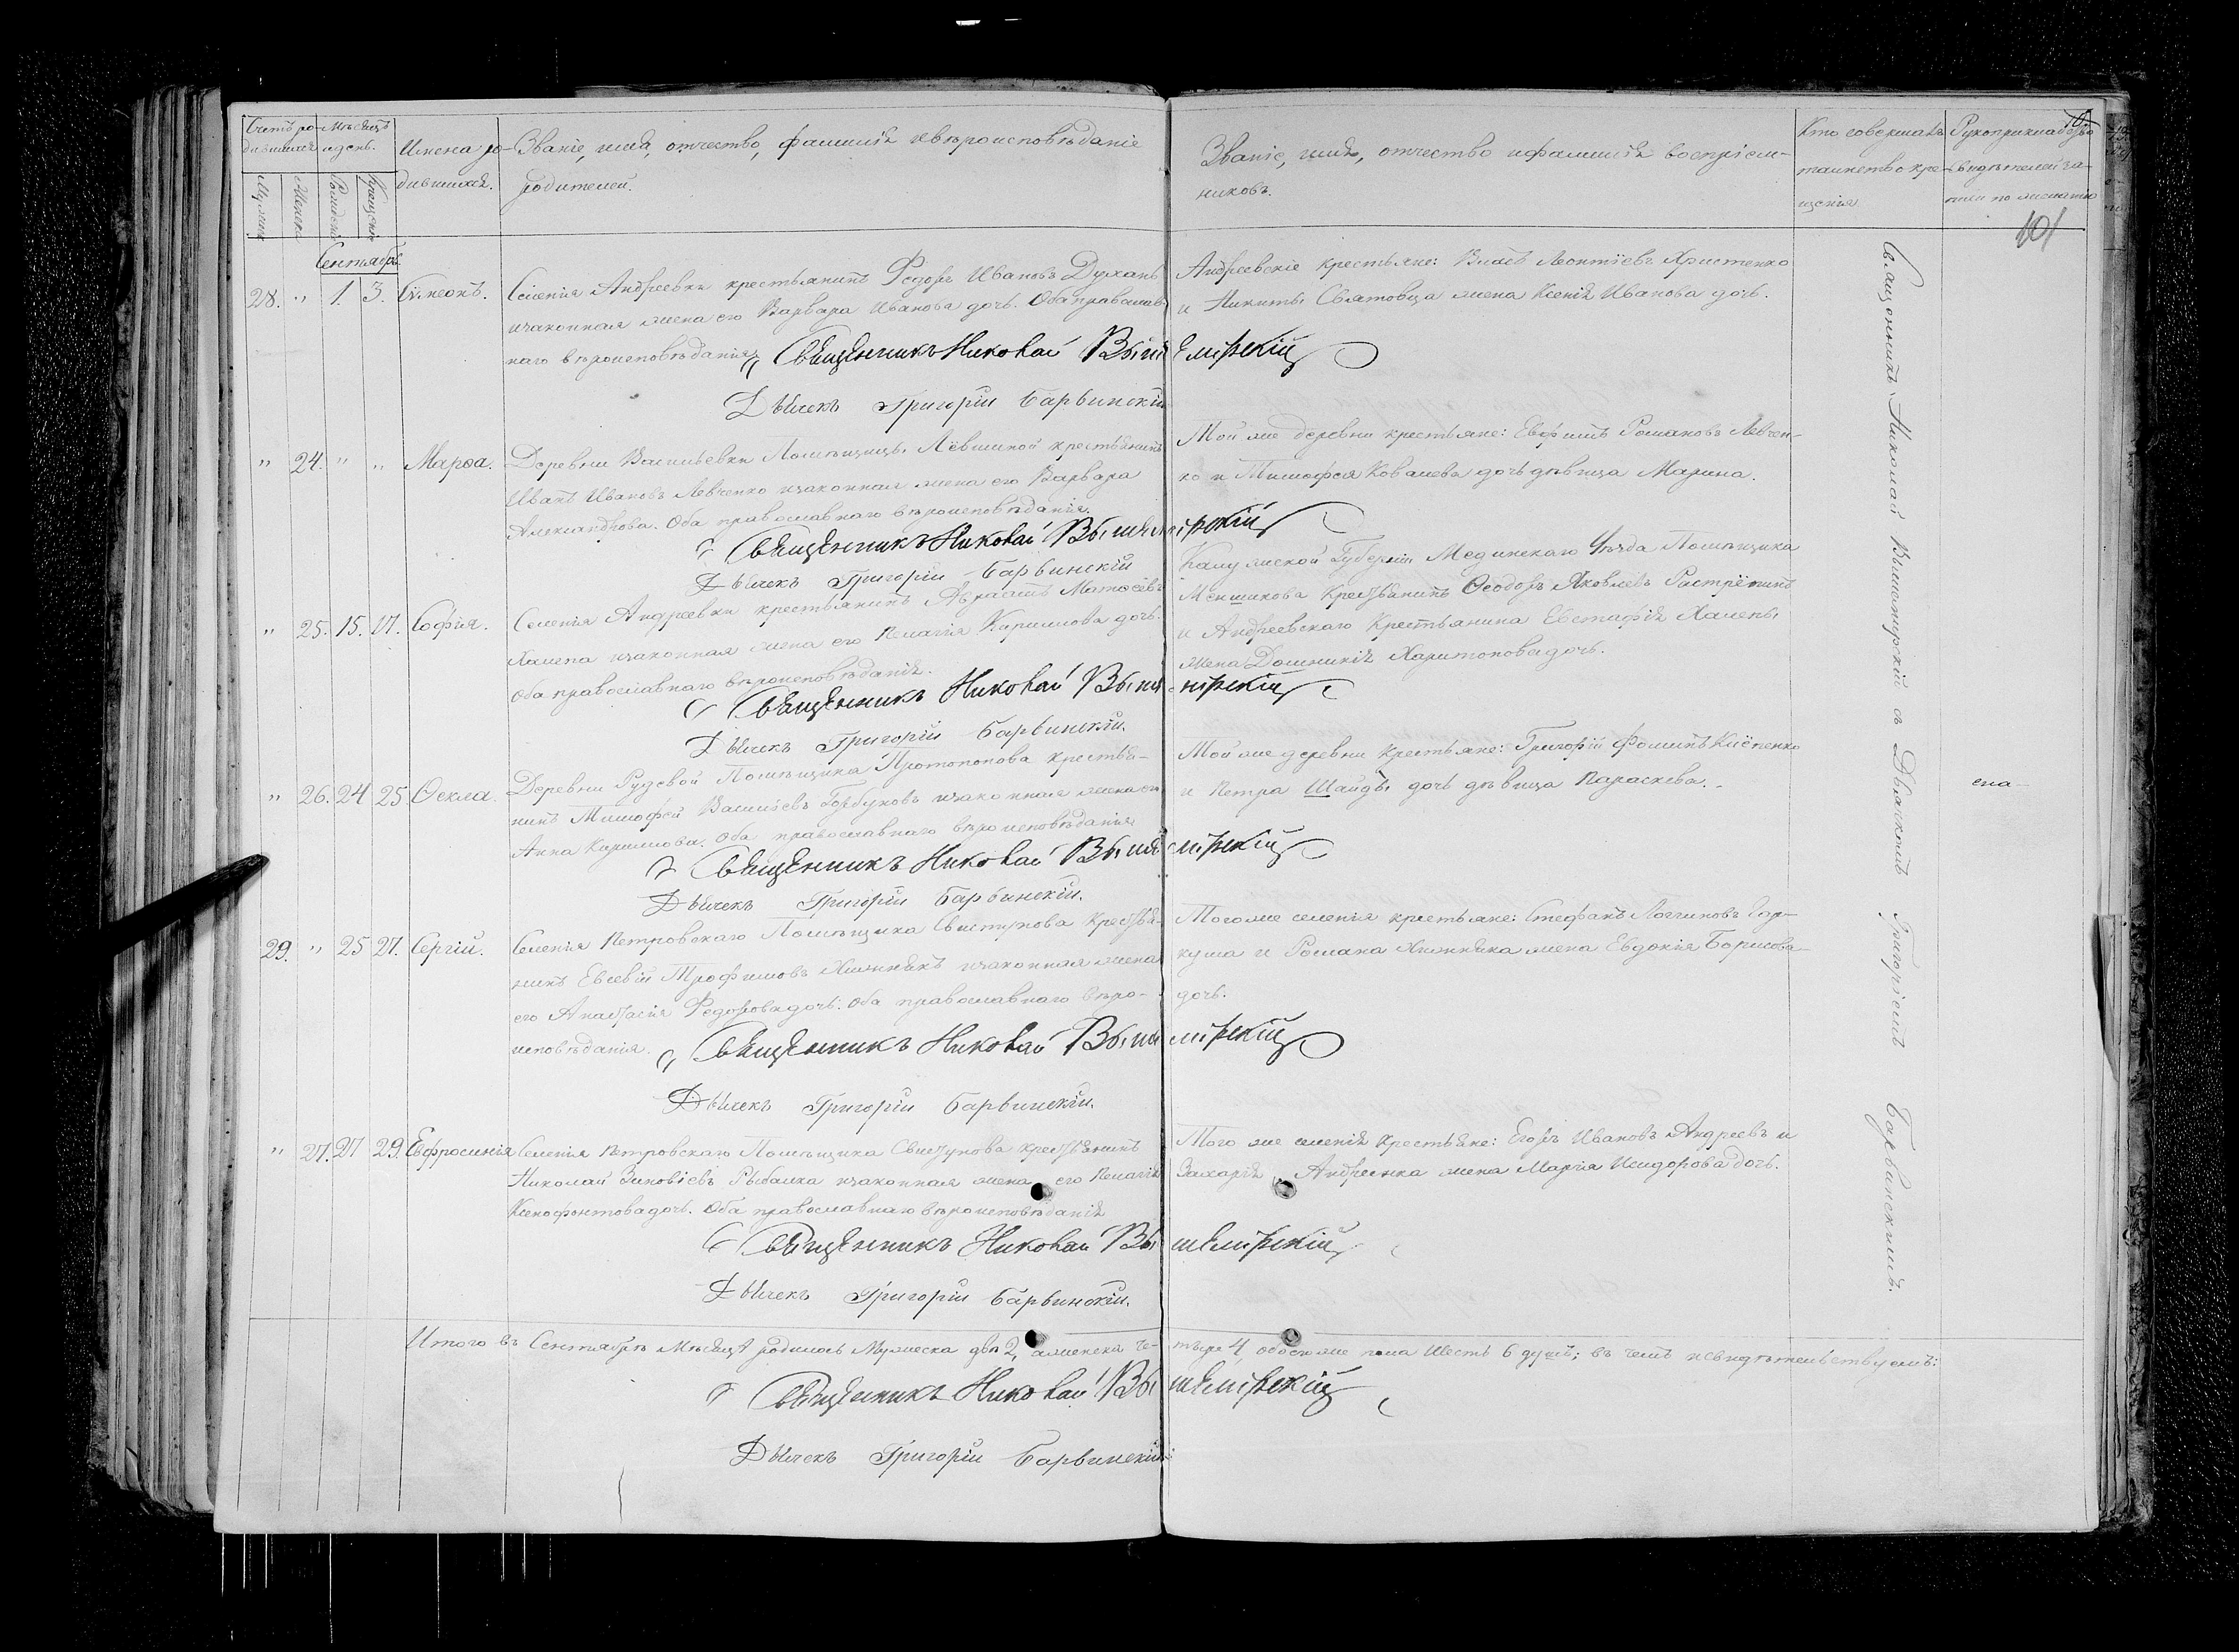 Счетъ ро-
дившихся
Мѣсяцъ
и день.
Мужеска
Женска
Рожденія
Крещенія
Имена ро-
дившихся.
Званіе, имя, отчество, фамилія и вѣроисповѣданіе
родителей.
Званіе, имя, отчество и фамилія воспріем-
никовъ.
Кто совершалъ
таинство кре-
щенія
Рукоприкладство
свидѣтелей за-
писи по желанію
101
Сентябрь.
28. " 1. 3. Сѵмеонъ.
Селенія Андреевки крестьянинъ Федоръ Ивановъ Духань
и законная жена его Варвара Иванова дочь. Оба православ-
наго вѣроисповѣданія
Андреевскіе крестьяне: Власъ Леонтіевъ Христенко
и Никиты Святовца жена Ксенія Иванова дочь.
Священникъ Николай Вышемірскій
Дьячекъ Григорій Барвинскій
" 24. " " Марѳа.
Деревни Васильевки Помѣщицы Лёвшиной крестьянинъ
Иванъ Ивановъ Левченко и законная жена его Варвара
Александрова. Оба православнаго вѣроисповѣданія.
Той же деревни крестьяне: Евфимъ Романовъ Левчен-
ко и Тимофея Ковалева дочь дѣвица Марина.
Священникъ Николай Вышемірскій
Дьячекъ Григорій Барвинскій
" 25. 15. 17. Софія.
Селенія Андреевки крестьянинъ Авраамъ Матѳеевъ
Халепа и законная жена его Пелагія Кириллова дочь.
Оба православнаго вѣроисповѣданія.
Калужской Губерніи Мединскаго Уѣзда Помѣщика
Меншикова Крестьянинъ Ѳеодоръ Яковлевъ Растрёпинъ
и Андреевскаго Крестьянина Евстафія Халепы
жена Домникія Харитонова дочь.
Священникъ Николай Вышемірскій
Дьячекъ Григорій Барвинскій.
" 26. 24 25 Ѳекла.
Деревни Рудевой Помѣщика Протопопова крестья-
нинъ Тимофей Васильевъ Горбуновъ и законная жена его
Анна Кириллова. Оба православнаго вѣроисповѣданія
Той же деревни крестьяне: Григорій Фоминъ Кнёпенко
и Петра Шайды дочь дѣвица Параскева.
Священникъ Николай Вышемірскій
Дьячекъ Григорій Барвинскій.
29. " 25 27. Сергій.
Селенія Петровскаго Помѣщика Свистунова крестья-
нинъ Евсевій Трофимовъ Хижнякъ и законная жена
его Анастасія Федорова дочь. Оба православнаго вѣро-
исповѣданія.
Того же селенія крестьяне: Стефанъ Логгиновъ Гар-
куша и Романа Хижняка жена Евдокія Борисова
дочь.
Священникъ Николай Вышемірскій
Дьячекъ Григорій Барвинскій.
" 27. 27 29. Евфросинія
Селенія Петровскаго Помѣщика Свистунова крестьянинъ
Николай Зиновіевъ Рыбалка и законная жена его Пелагія
Ксенофонтова дочь. Оба православнаго вѣроисповѣданія
Того же селенія крестьяне: Егоръ Ивановъ Андреевъ и
Захарія Андреенка жена Марія Исидорова дочь.
Священникъ Николай Вышемірскій
Дьячекъ Григорій Барвинскій.
Священникъ Николай Вышемірскій съ Дьячкомъ Григоріемъ Барвинскимъ.
Итого въ Сентябрѣ Мѣсяцѣ родилось Мужеска два 2, а женска че-
тыре 4, обоего же пола шесть 6 душъ; въ чемъ и свидѣтельствуемъ:
Священникъ Николай Вышемірскій
Дьячекъ Григорій Барвинскій